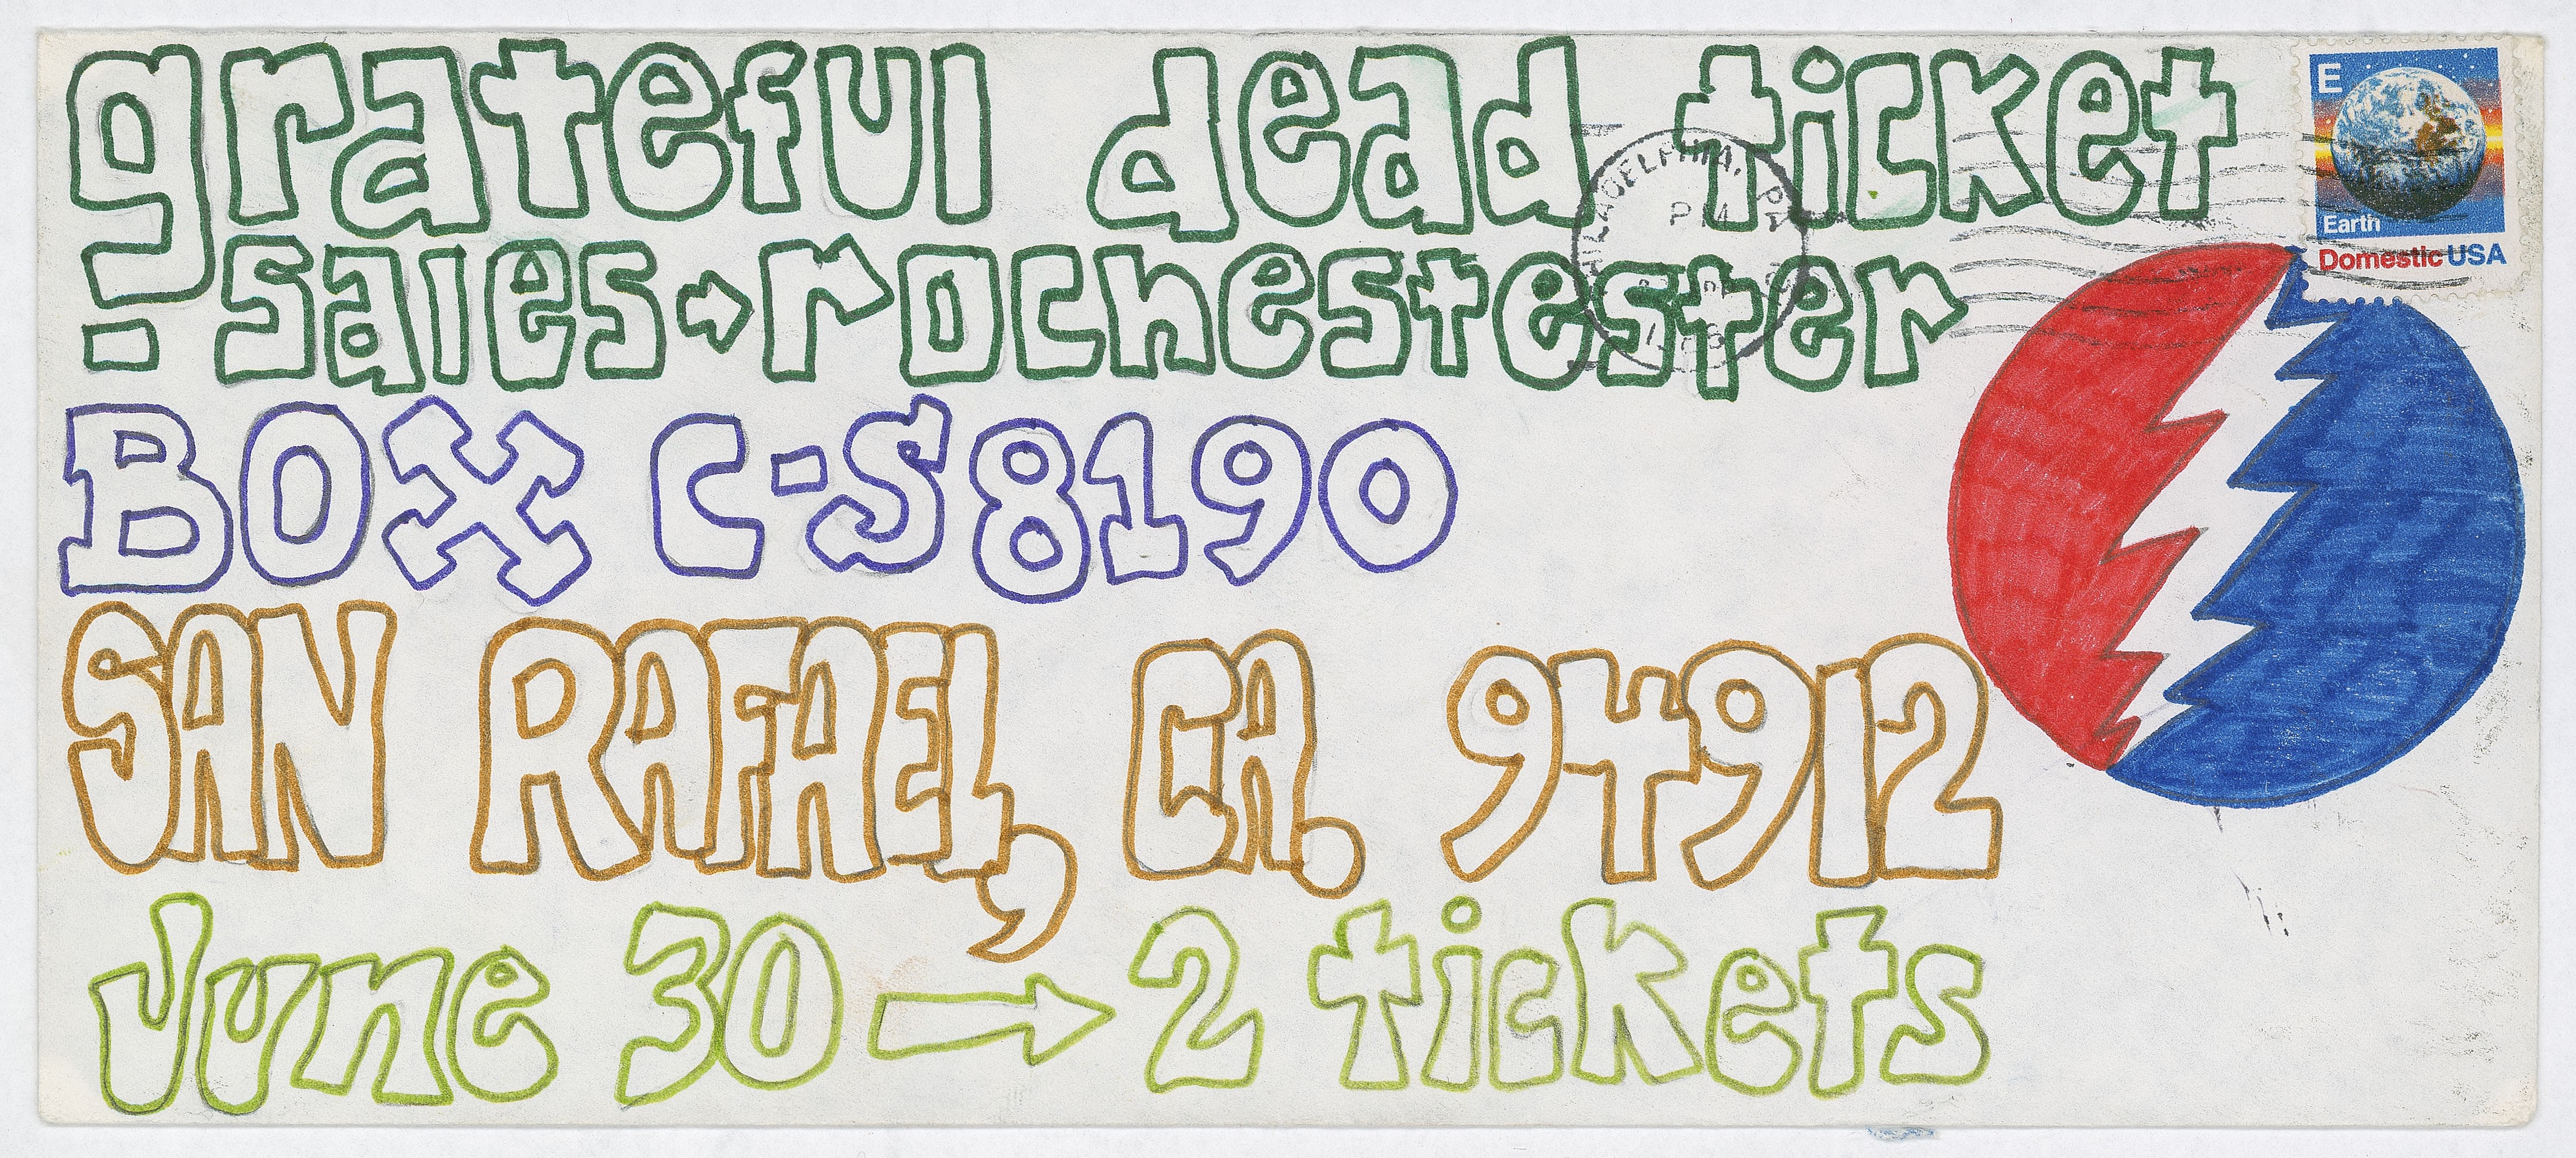 grateful dead ticket
- sales → rochestester
BOX C-S8190
SAN RAFAEL, CA. 94912
June 30 → 2 tickets
E
Earth
Domestic USA
PHILADELPHIA, PA
PM